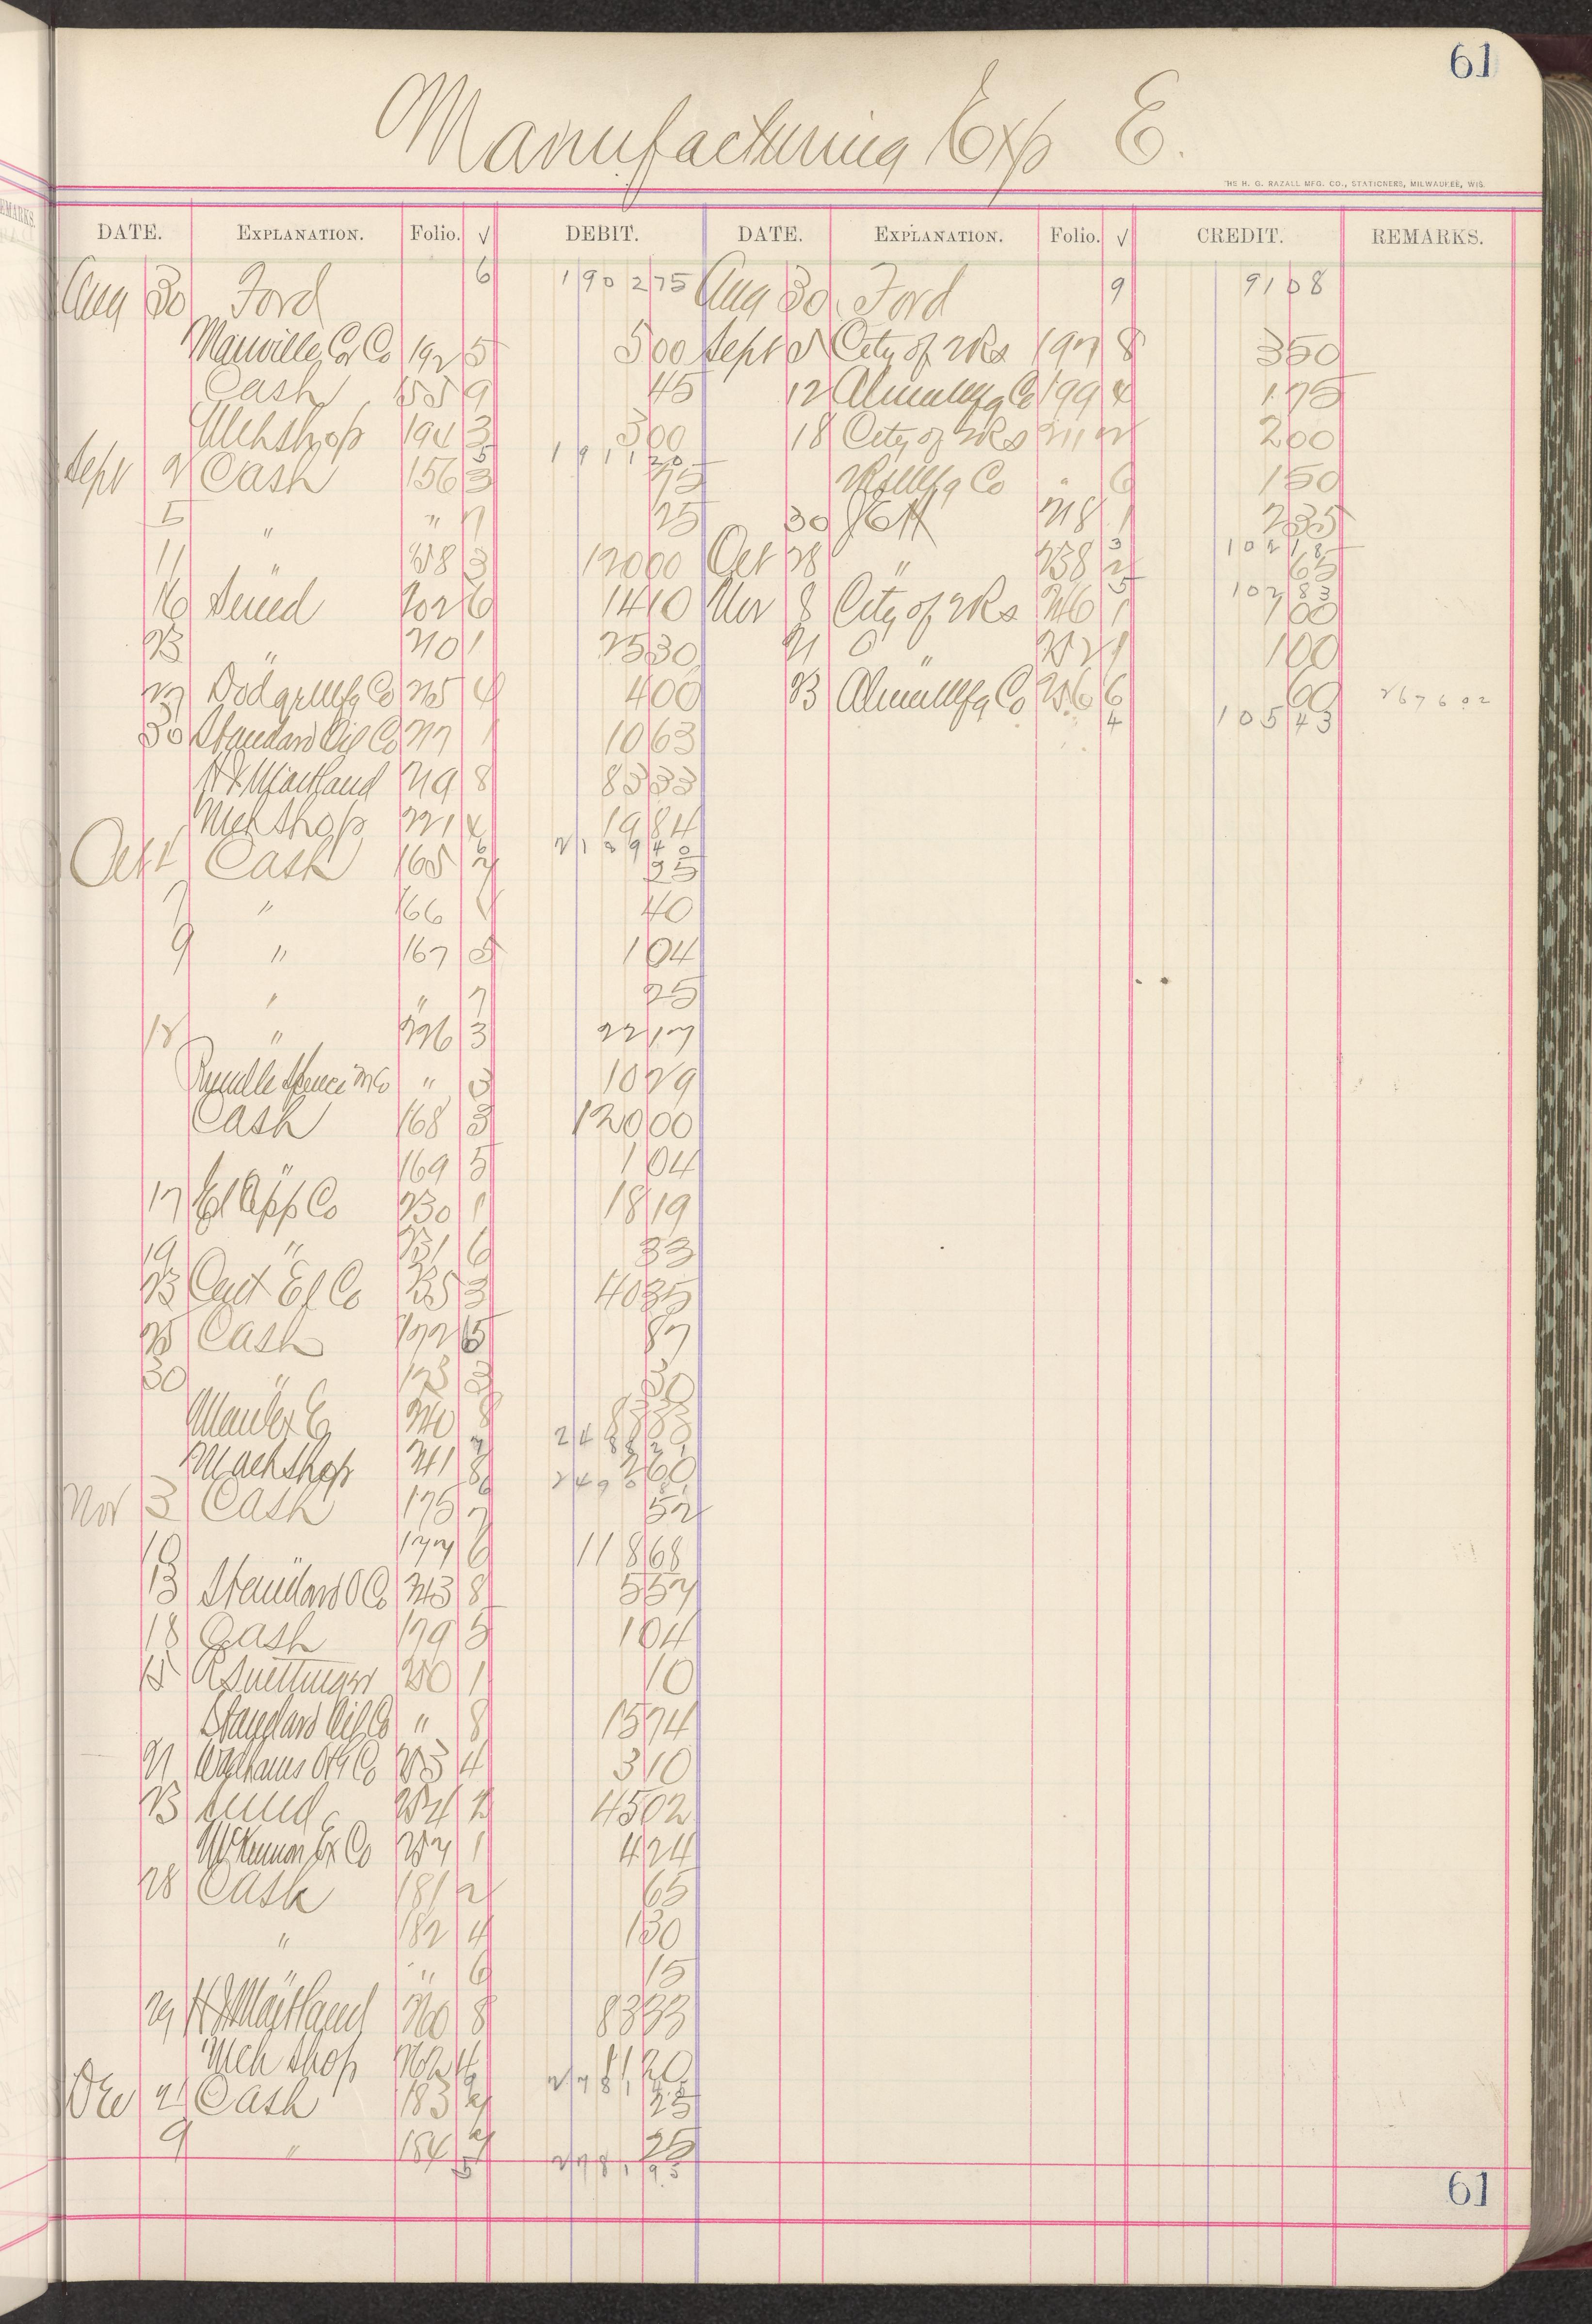 61
Manufacturing Exp E.
THE H. G. RAZALL MFG. CO., STATIONERS, MILWAUKEE, WIS.
DATE. EXPLANATION. Folio. √ DEBIT. DATE. EXPLANATION. Folio. √ CREDIT. REMARKS.
Aug 30 Ford 6 190275 Aug 30 Ford 9 9108
Manville Co 192 5 500 Sept City of 197 8 350
Cash 155 9 45 12 Mfg Co 199 4 175
Mch shop 194 3 300 18 City of 211 2 200
191120
Sept 2 Cash 156 3 75 Mfg Co " 6 150
5 " " 7 25 30 218 1 235
10218
11 " 158 3 12000 Oct 28 " 238 2 65
10283
16 Sund 202 6 1410 Nov 8 City of 246 1 700
23 " 210 1 2530 21 " 252 1 100
27 Dodge Mfg Co 215 4 400 23 Mfg Co 256 6 60 267602
10543
30 Standard Oil Co 217 1 1063
H J Maitland 219 8 8333
Mch shop 221 4 1984
218940
Oct 1 Cash 165 25
7 " 166 40
9 " 167 5 104
" " 7 25
12 " 226 3 2217
Rundle Spence M Co " 3 1029
Cash 168 3 12000
" 169 5 104
17 El App Co 230 1 1819
19 " 231 6 33
23 Cent El Co 235 3 4035
25 Cash 172 87
30 " 173 3 30
240 8 8333
Mach shop 241 8 260
Nov 3 Cash 175 7 52
10 " 177 6 11868
13 Standard O Co 243 8 557
18 Cash 179 5 104
15 250 1 10
Standard Oil Co " 8 1574
21 Wadhams O & G Co 253 4 310
23 Sund 254 2 4502
Co 257 1 424
28 Cash 181 2 65
" 182 4 130
" " 6 15
29 H J Maitland 260 8 8333
Mch shop 262 4 1120
Dec 2 Cash 183 25
9 " 184 25
278195
61